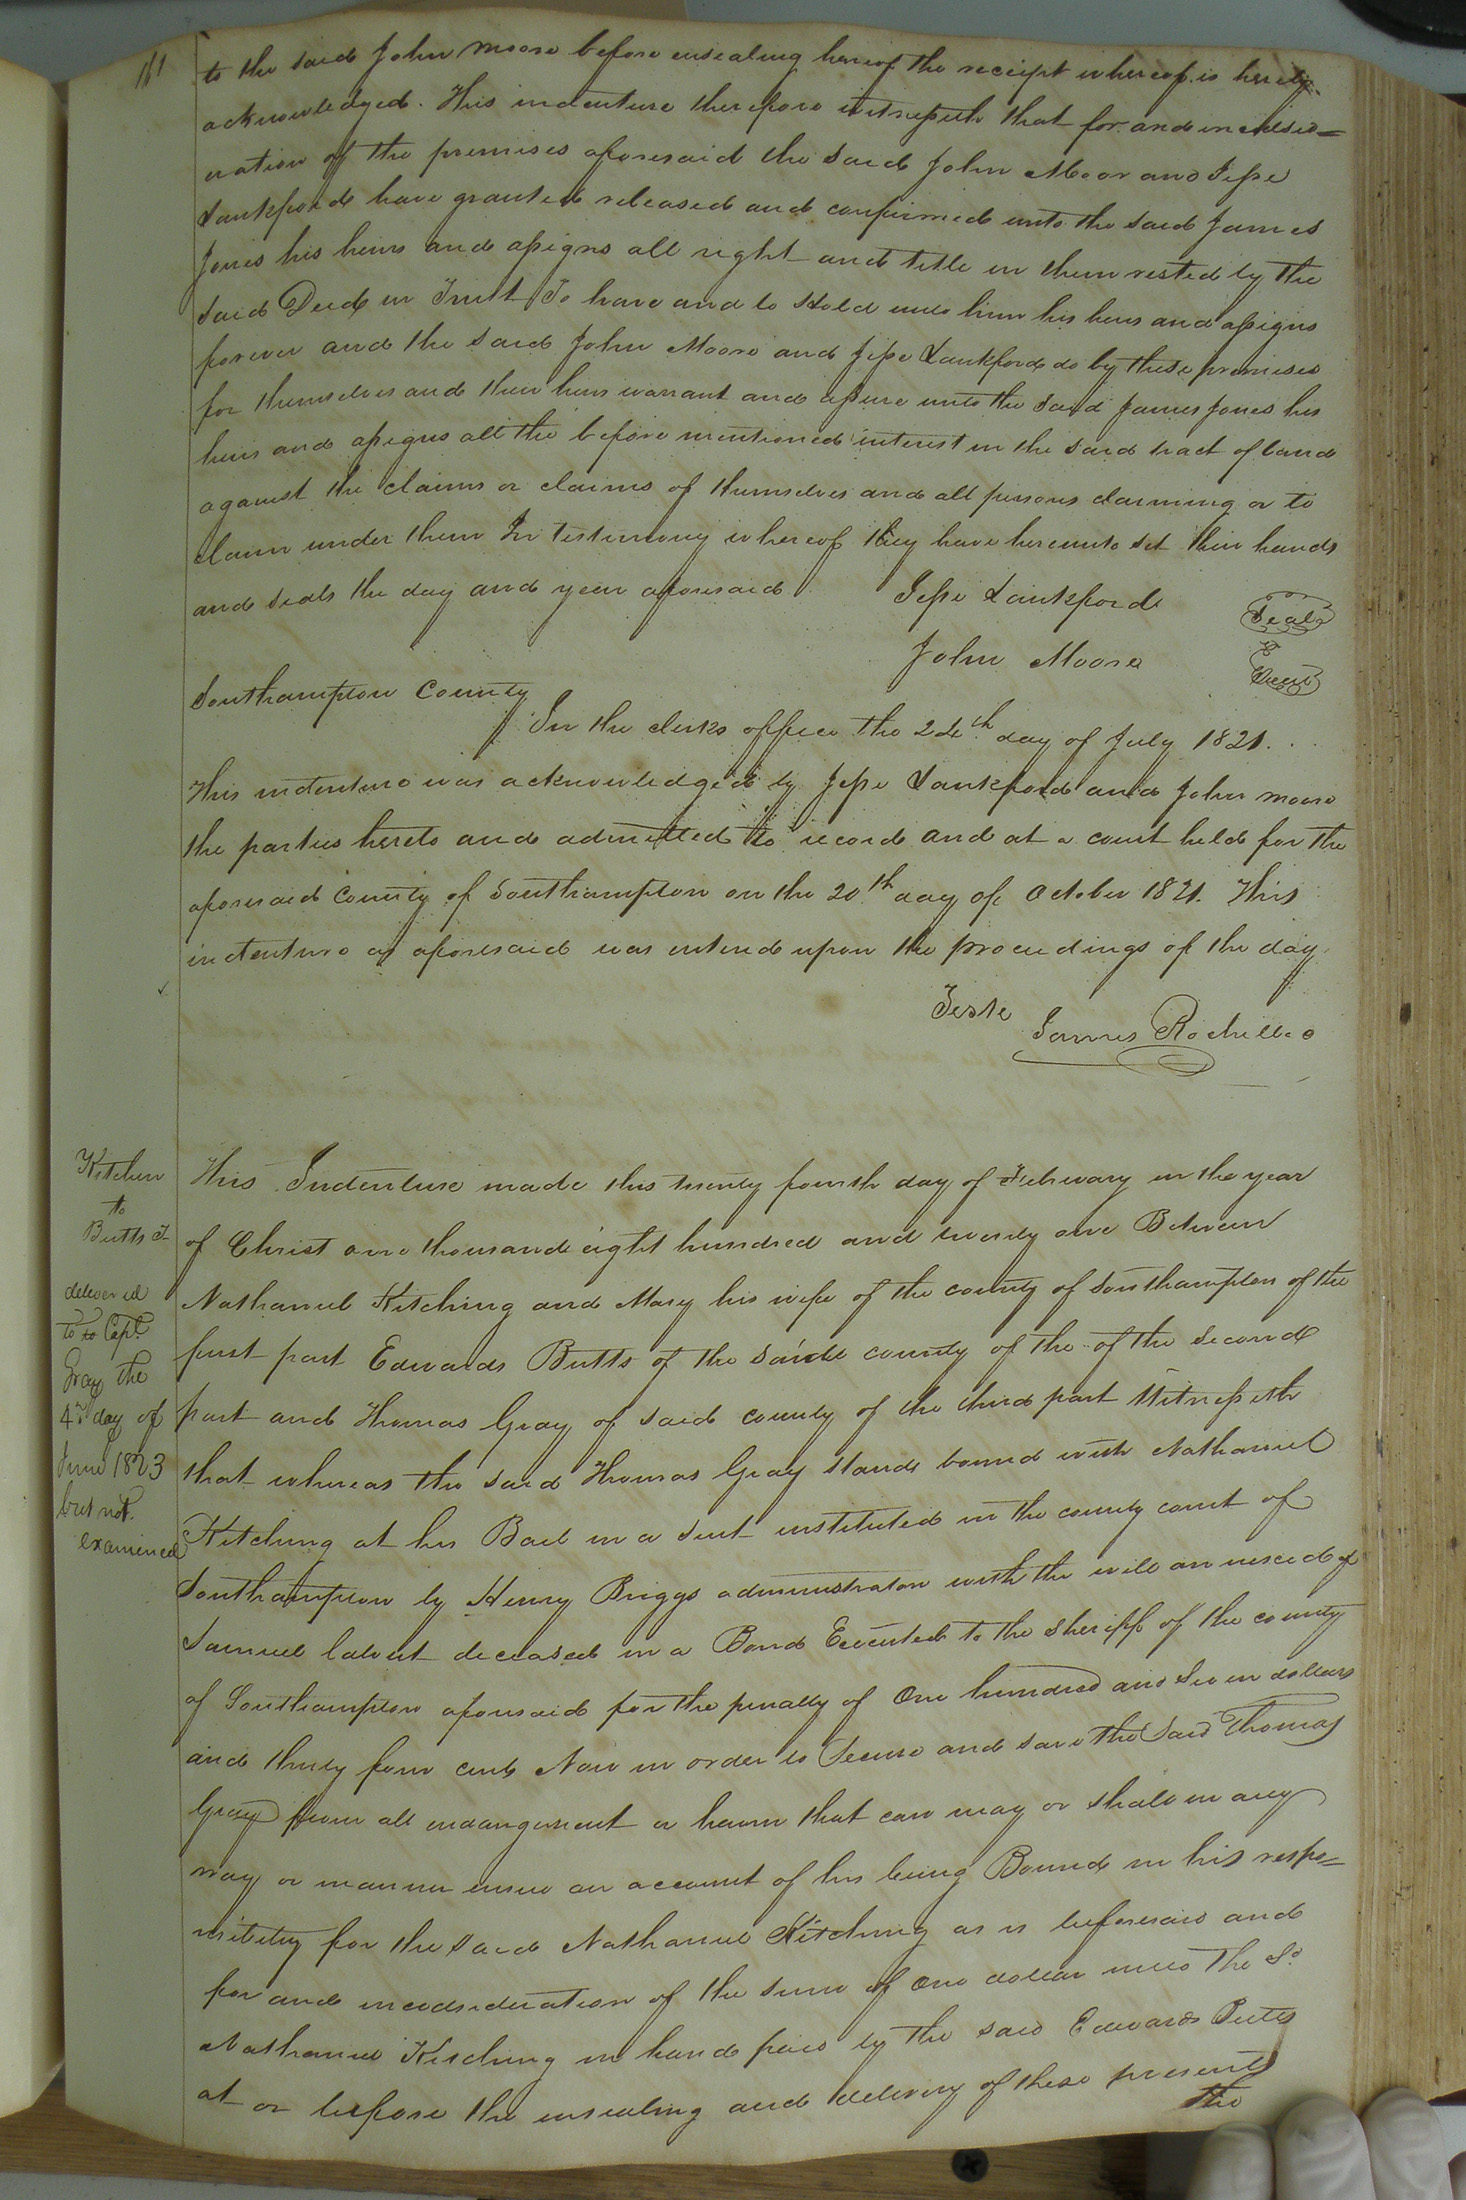 161
to the said John Moore before ensealing hereof the reciept whereof is hereby
acknowledged. This indenture therefore witnesseth that for and in consid=
eration of the premises aforesaid the said John Moor and Jesse
Lankford have granted released and confirmed unto the said James
Jones his heirs and assigns all right and title in them vested by the
said Deed in Trust To have and to Hold unto him his heirs and assigns
forever and the said John Moore and Jesse Lankford do by these premises
for themselves and their heirs warrant and assure unto the said James Jones his
heirs and assigns all the before mentioned interest in the said tract of land
against the claims or claims of themselves and all persons claiming or to
claim under them In testimony whereof they have hereunto set their hands
and seals the day and year aforesaid
Jesse Lankford Seal
John Moore Seal
Southampton County
In the clerks office the 24th day of July 1821.
This indenture was acknowledged by Jesse Lankford and John Moore
the parties hereto and admitted to record and at a court held for the
aforesaid County of Southampton on the 20th day of October 1821. This
indenture as aforesaid was enterd upon the proceedings of the day
Teste
James Rochelle
Kitchen
to
Butts T
delivered
to to Capt.
Gray the
4th day of
June 1823
but not
examined
This Indenture made this twenty fourth day of February in the year
of Christ one thousand eight hundred and twenty one Between
Nathaniel Kitching and Mary his wife of the county of Southampton of the
first part Edwards Butts of the said county of the of the second
part and Thomas Gray of said county of the third part Witnesseth
that whereas the said Thomas Gray stands bound with Nathaniel
Kitching as his Bail in a suit instituted in the county court of
Southampton by Henry Briggs administrator with the will annexed of
Samuel Calvert deceased in a Bond Executed to the Sheriff of the county
of Southampton aforesaid for the penalty of One hundred and Seven dollars
and thirty four cents Now in order to Secure and save the said Thomas
Gray from all endangerment or harm that can may or shall in any
way or manner ensue on account of his being Bound in his respo=
nsibility for the said Nathaniel Kitching as is beforesaid and
for and in considideration of the sum of one dollar unto the Sd.
Nathaniel Kitching in hand paid by the said Edwards Butts
at or before the ensealing and delivery of these presents
the